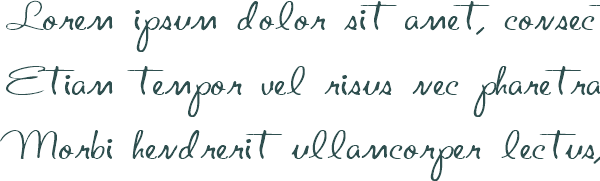 Lorem ipsum dolor sit amet, consec
Etiam tempor vel risus nec pharetra
Morbi hendrerit ullamcorper lectus,